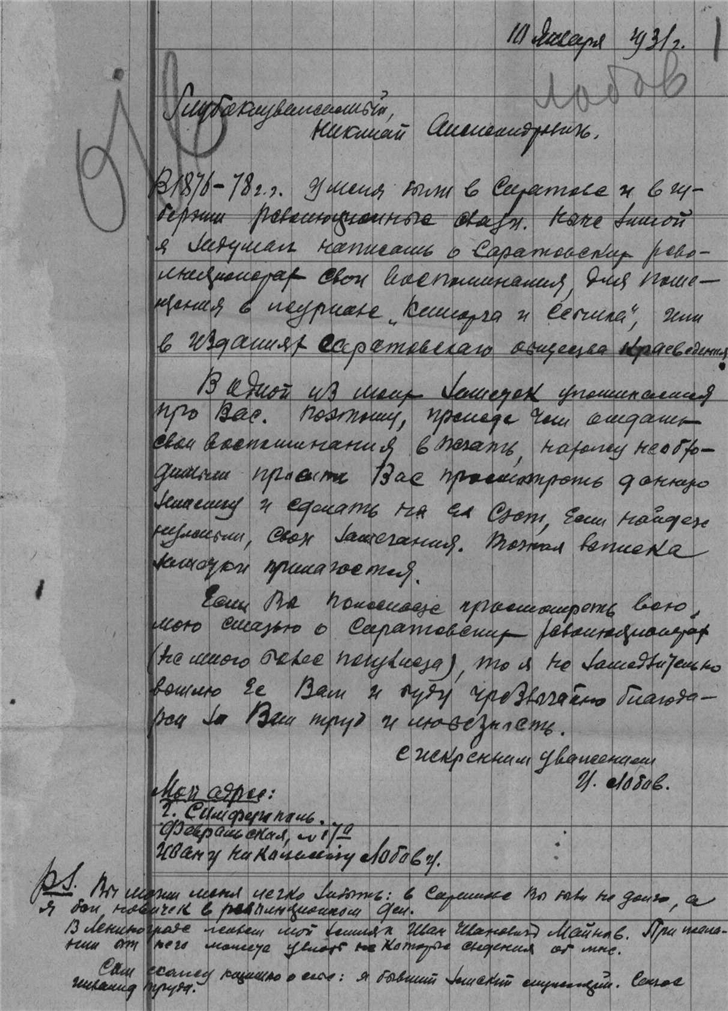 10 января 1931 г.
Лобов
Глубокоуважаемый,
Николай Александрович.
В 1876-78 г.г. у меня были в Саратове и в гу-
бернии революционные связи.
я задумал написать о Саратовских рево-
люционерах свои воспоминания, для поме-
щения в журнале „Каторга и ссылка", или
в изданиях саратовскаго общества краеведения.
В одной из моих заметок упоминается
про Вас. Поэтому, прежде чем отдать
свои воспоминания в печать, нахожу необхо-
димым просить Вас просмотреть данную
заметку и сделать на ея счет, если найдете
нужным, свои замечания. Точная выписка
заметки прилагается.
Если Вы пожелаете просмотреть всю,
мою статью о Саратовских революционерах
(не много более полулиста), то я не замедлительно
вышлю ее Вам и буду чрезвычайно благода-
рен за Ваш труд и любезность.
с искренним уважением
И. Лобов.
Мой адрес:
г. Симферополь.
Февральская, № 17а
Ивану Николаевичу Лобову.
PS. Вы могли меня легко забыть: в Саратове Вы были не долго, а
я был новичек в революционном деле.
В Ленинграде живет мой земляк Иван Иванович Майнов. При жела-
нии от него можете узнать некоторые сведения об мне.
Сам скажу кое-что о себе: я бывший земский служащий. Сейчас
инвалид труда.